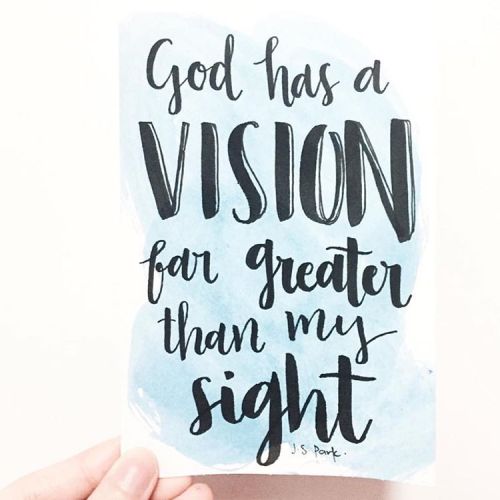 God has a
VISION
far greater
than my
sight
J.S Park.